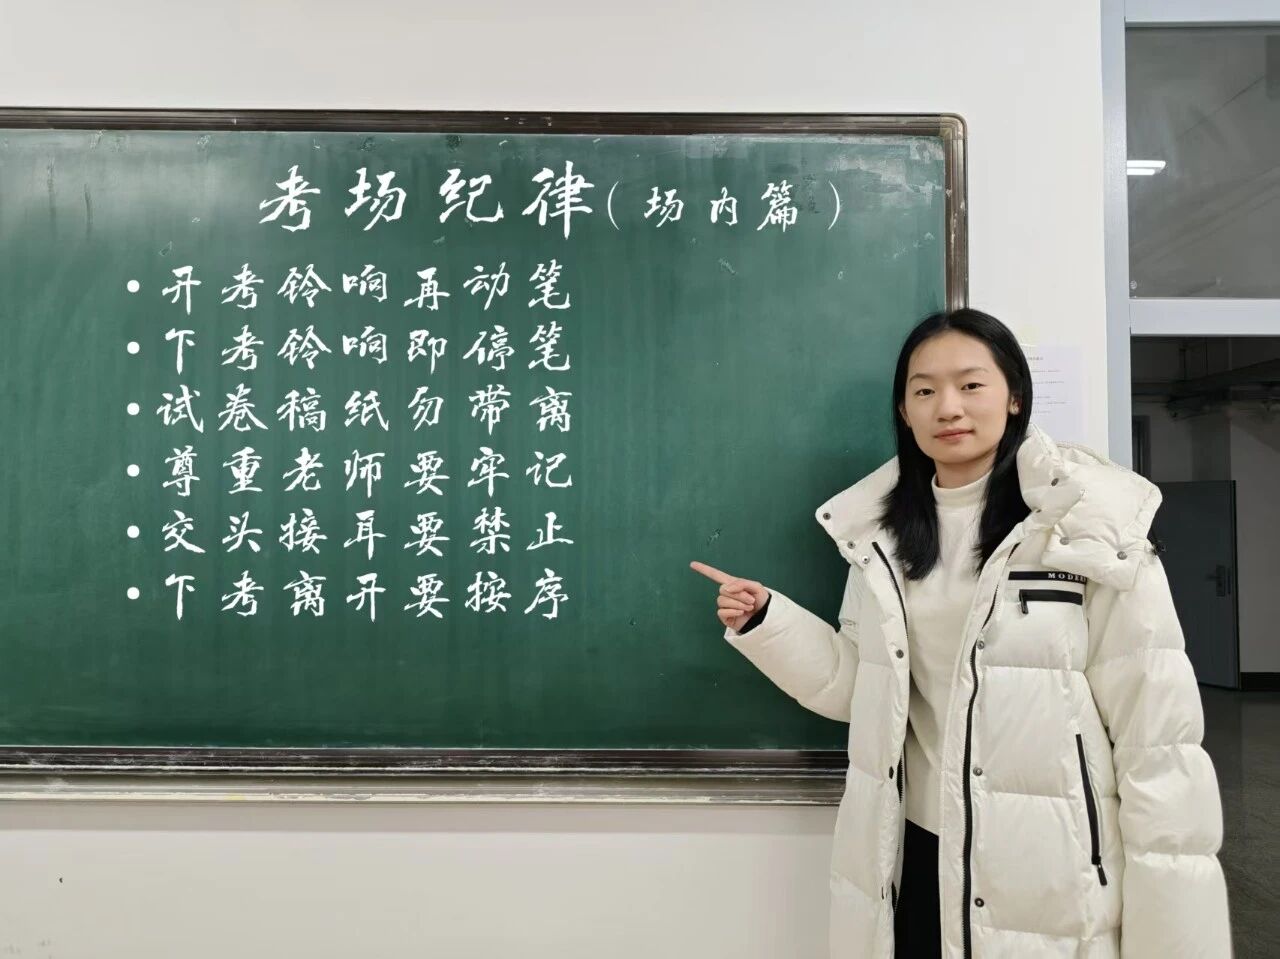 考场纪律(场内篇)
• 开考铃响再动笔
• 下考铃响即停笔
• 试卷稿纸勿带离
• 尊重老师要牢记
• 交头接耳要禁止
• 下考离开要按序